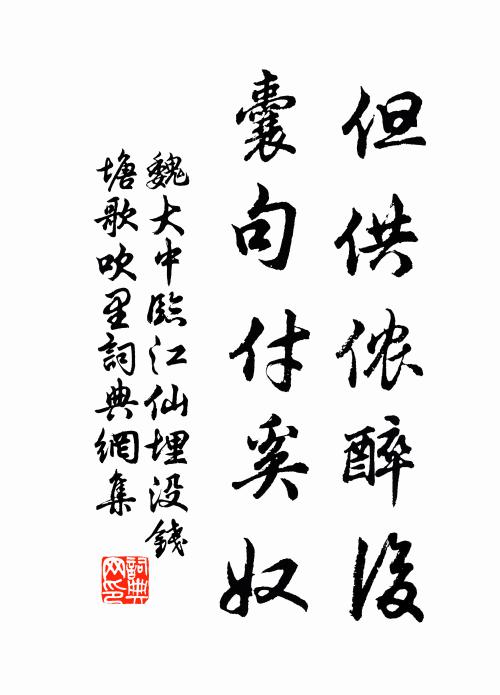 但供侬醉后
囊句付奚奴
魏大中臨江仙埋没錢
塘歌吹里詞典網集
詞典网印